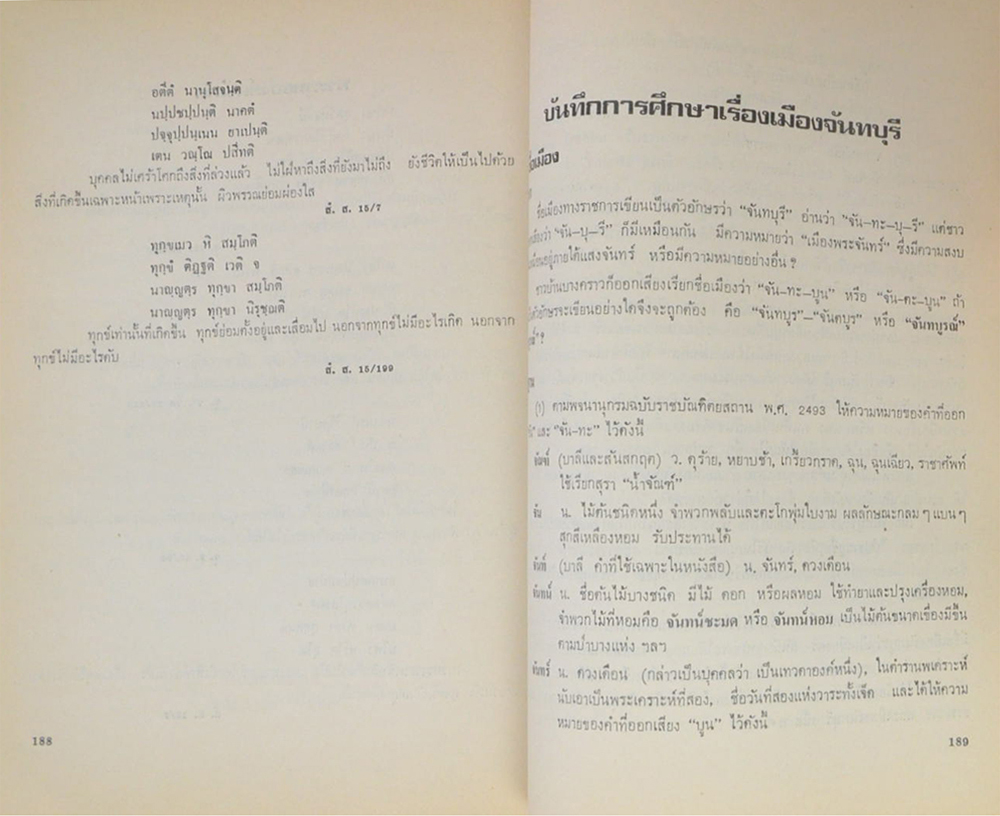 อตีตํ นานุโสจนฺติ
นปฺปชปฺปนฺติ นาคตํ
ปจฺจุปฺปนฺเนน ยาเปนฺติ
เตน วณฺโณ ปสีทติ
บุคคลไม่เศร้าโศกถึงสิ่งที่ล่วงแล้ว ไม่ใฝ่หาถึงสิ่งที่ยังมาไม่ถึง ยังชีวิตให้เป็นไปด้วย
สิ่งที่เกิดขึ้นเฉพาะหน้าเพราะเหตุนั้น ผิวพรรณย่อมผ่องใส
สํ. ส. 15/7
ทุกฺขเมว หิ สมฺโภติ
ทุกฺขํ ติฏฺฐติ เวติ จ
นาญฺญตฺร ทุกฺขา สมฺโภติ
นาญฺญตฺร ทุกฺขา นิรุชฺฌติ
ทุกข์เท่านั้นที่เกิดขึ้น ทุกข์ย่อมตั้งอยู่และเสื่อมไป นอกจากทุกข์ไม่มีอะไรเกิด นอกจาก
ทุกข์ไม่มีอะไรดับ
สํ. ส. 15/199
188
บันทึกการศึกษาเรื่องเมืองจันทบุรี
ชื่อเมือง
ชื่อเมืองทางราชการเขียนเป็นตัวอักษรว่า “จันทบุรี” อ่านว่า “จัน–ทะ–บุ–รี” แต่ชาว
ว่า “จัน–บุ–รี” ก็มีเหมือนกัน มีความหมายว่า “เมืองพระจันทร์” ซึ่งมีความสงบ
อยู่ภายใต้แสงจันทร์ หรือมีความหมายอย่างอื่น ?
ชาวบ้านบางคราวก็ออกเสียงเรียกชื่อเมืองว่า “จัน–ทะ–บูน” หรือ “จัน–ตะ–บูน” ถ้า
ตัวอักษรจะเขียนอย่างใดจึงจะถูกต้อง คือ “จันทบุร”–“จันตบูร” หรือ “จันทบูรณ์”
?
(1) ตามพจนานุกรมฉบับราชบัณฑิตยสถาน พ.ศ. 2493 ให้ความหมายของคำที่ออก
และ “จัน–ทะ” ไว้ดังนี้
จัณฑ์ (บาลีและสันสกฤต) ว. ดุร้าย, หยาบช้า, เกรี้ยวกราด, ฉุน, ฉุนเฉียว, ราชาศัพท์
ใช้เรียกสุรา “น้ำจัณฑ์”
จัน น. ไม้ต้นชนิดหนึ่ง จำพวกพลับและตะโกพุ่มใบงาม ผลลักษณะกลม ๆ แบน ๆ
สุกสีเหลืองหอม รับประทานได้
จันท์ (บาลี คำที่ใช้เฉพาะในหนังสือ) น. จันทร์, ดวงเดือน
จันทน์ น. ชื่อต้นไม้บางชนิด มีไม้ ดอก หรือผลหอม ใช้ทำยาและปรุงเครื่องหอม,
จำพวกไม้ที่หอมคือ จันทน์ชะมด หรือ จันทน์หอม เป็นไม้ต้นขนาดเขื่องมีขึ้น
ตามป่าบางแห่ง ฯลฯ
จันทร์ น. ดวงเดือน (กล่าวเป็นบุคคลว่า เป็นเทวดาองค์หนึ่ง), ในตำรานพเคราะห์
นับเอาเป็นพระเคราะห์ที่สอง, ชื่อวันที่สองแห่งวาระทั้งเจ็ด และได้ให้ความ
หมายของคำที่ออกเสียง “บูน” ไว้ดังนี้
189